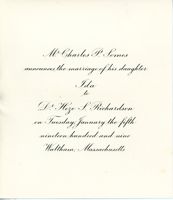 Mr Charles P. Somes
announces the marriage of his daughter
Ida
to
Dr S. Richardson
on Tuesday, January the fifth
nineteen hundred and nine
Waltham, Massachusetts